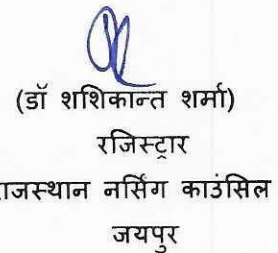 (डॉ शशिकान्त शर्मा)
रजिस्ट्रार
राजस्थान नर्सिंग काउंसिल
जयपुर